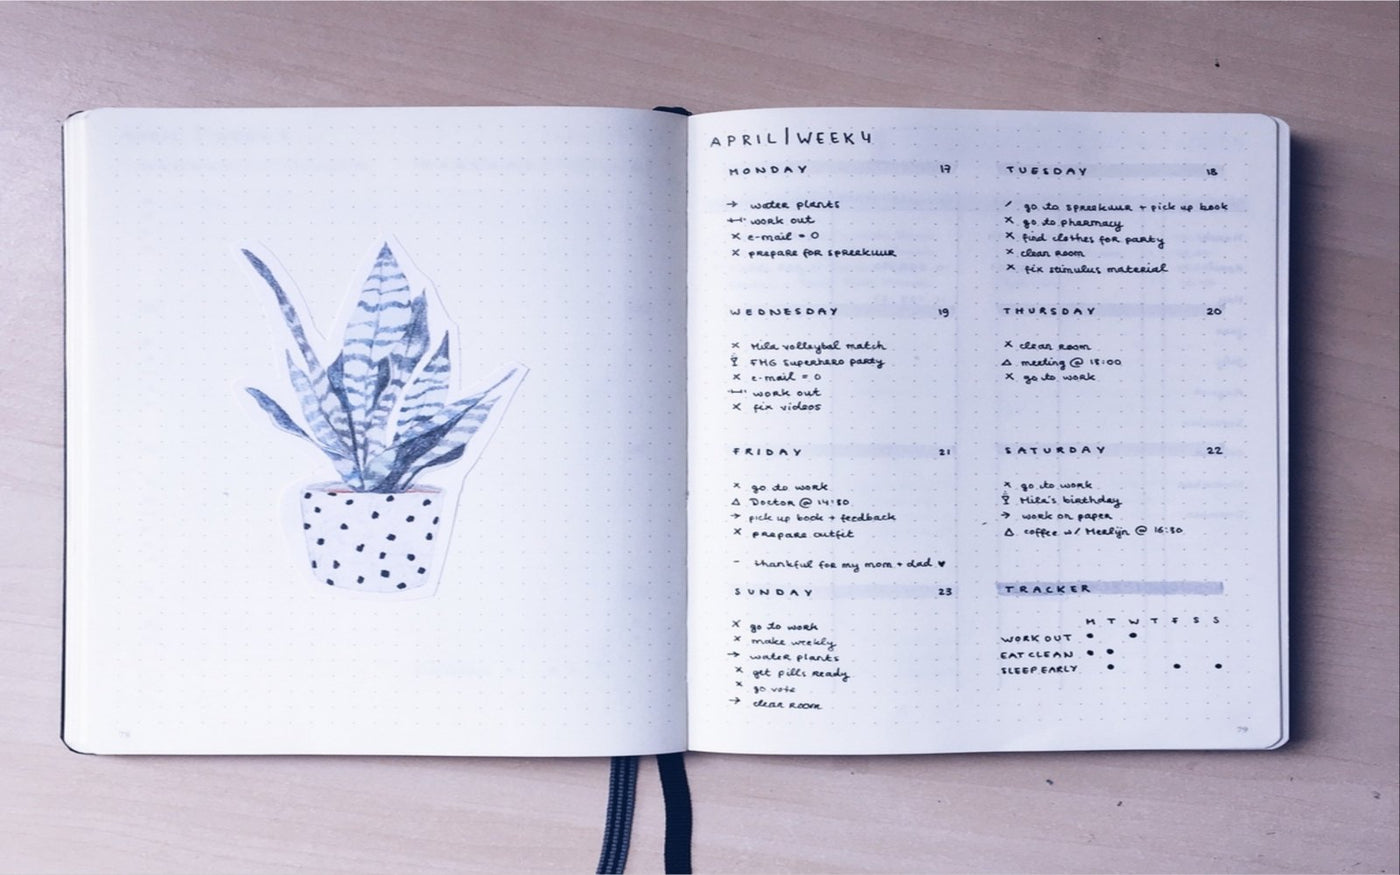 APRIL | WEEK 4
MONDAY 17
→ water plants
work out
x e-mail = 0
x prepare for spreekuur
TUESDAY 18
/ go to spreekuur + pick up book
x go to pharmacy
x find clothes for party
x clean room
x fix stimulus material
WEDNESDAY 19
x Mila volleybal match
FMG Superhero party
x e-mail = 0
work out
x fix videos
THURSDAY 20
x clean room
△ meeting @ 18:00
x go to work
FRIDAY 21
x go to work
△ Doctor @ 14:30
→ pick up book + feedback
x prepare outfit
- thankful for my mom + dad ♥
SATURDAY 22
x go to work
Mila's birthday
→ work on paper
△ coffee w/ Merlijn @ 16:30
SUNDAY 23
x go to work
x make weekly
→ water plants
x get pills ready
x go vote
→ clean room
TRACKER
M T W T F S S
WORK OUT
EAT CLEAN
SLEEP EARLY
78
79